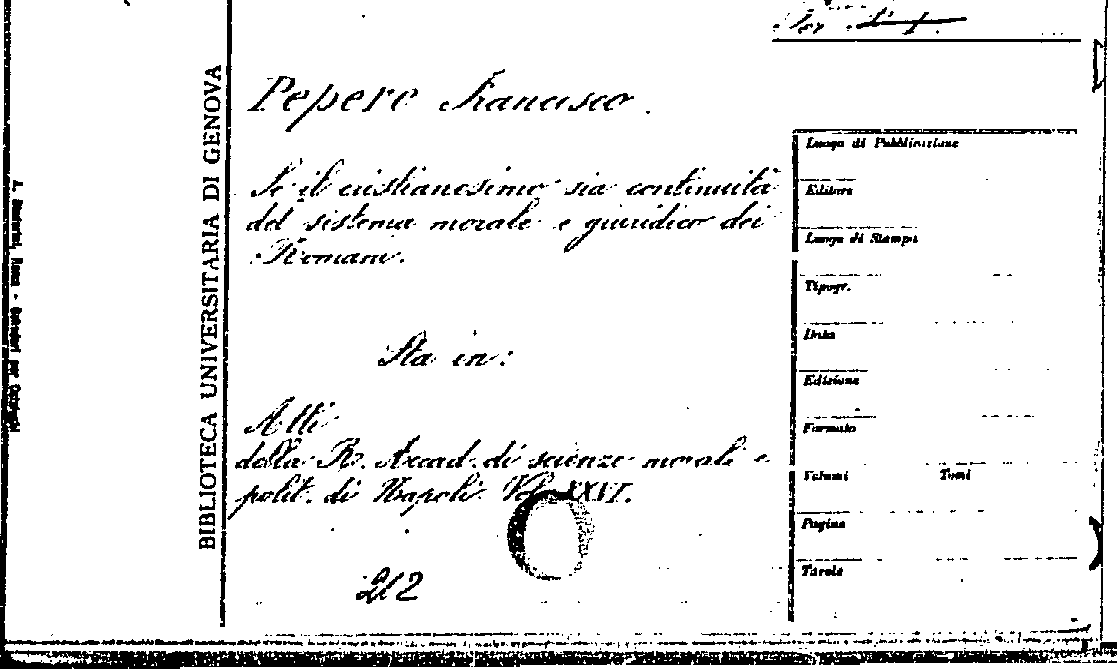 Per
Pepere Francesco.
Se il cristianesimo sia continuità
del sistema morale e giuridico dei
Romani.
Sta in:
Atti
della R. Accad. di scienze morali e
polit. di Napoli. Vol. XXVI.
212
BIBLIOTECA UNIVERSITARIA DI GENOVA
Luogo di Pubblicazione
Editore
Luogo di Stampa
Tipogr.
Data
Edizione
Formato
Volumi Tomi
Pagine
Tavole